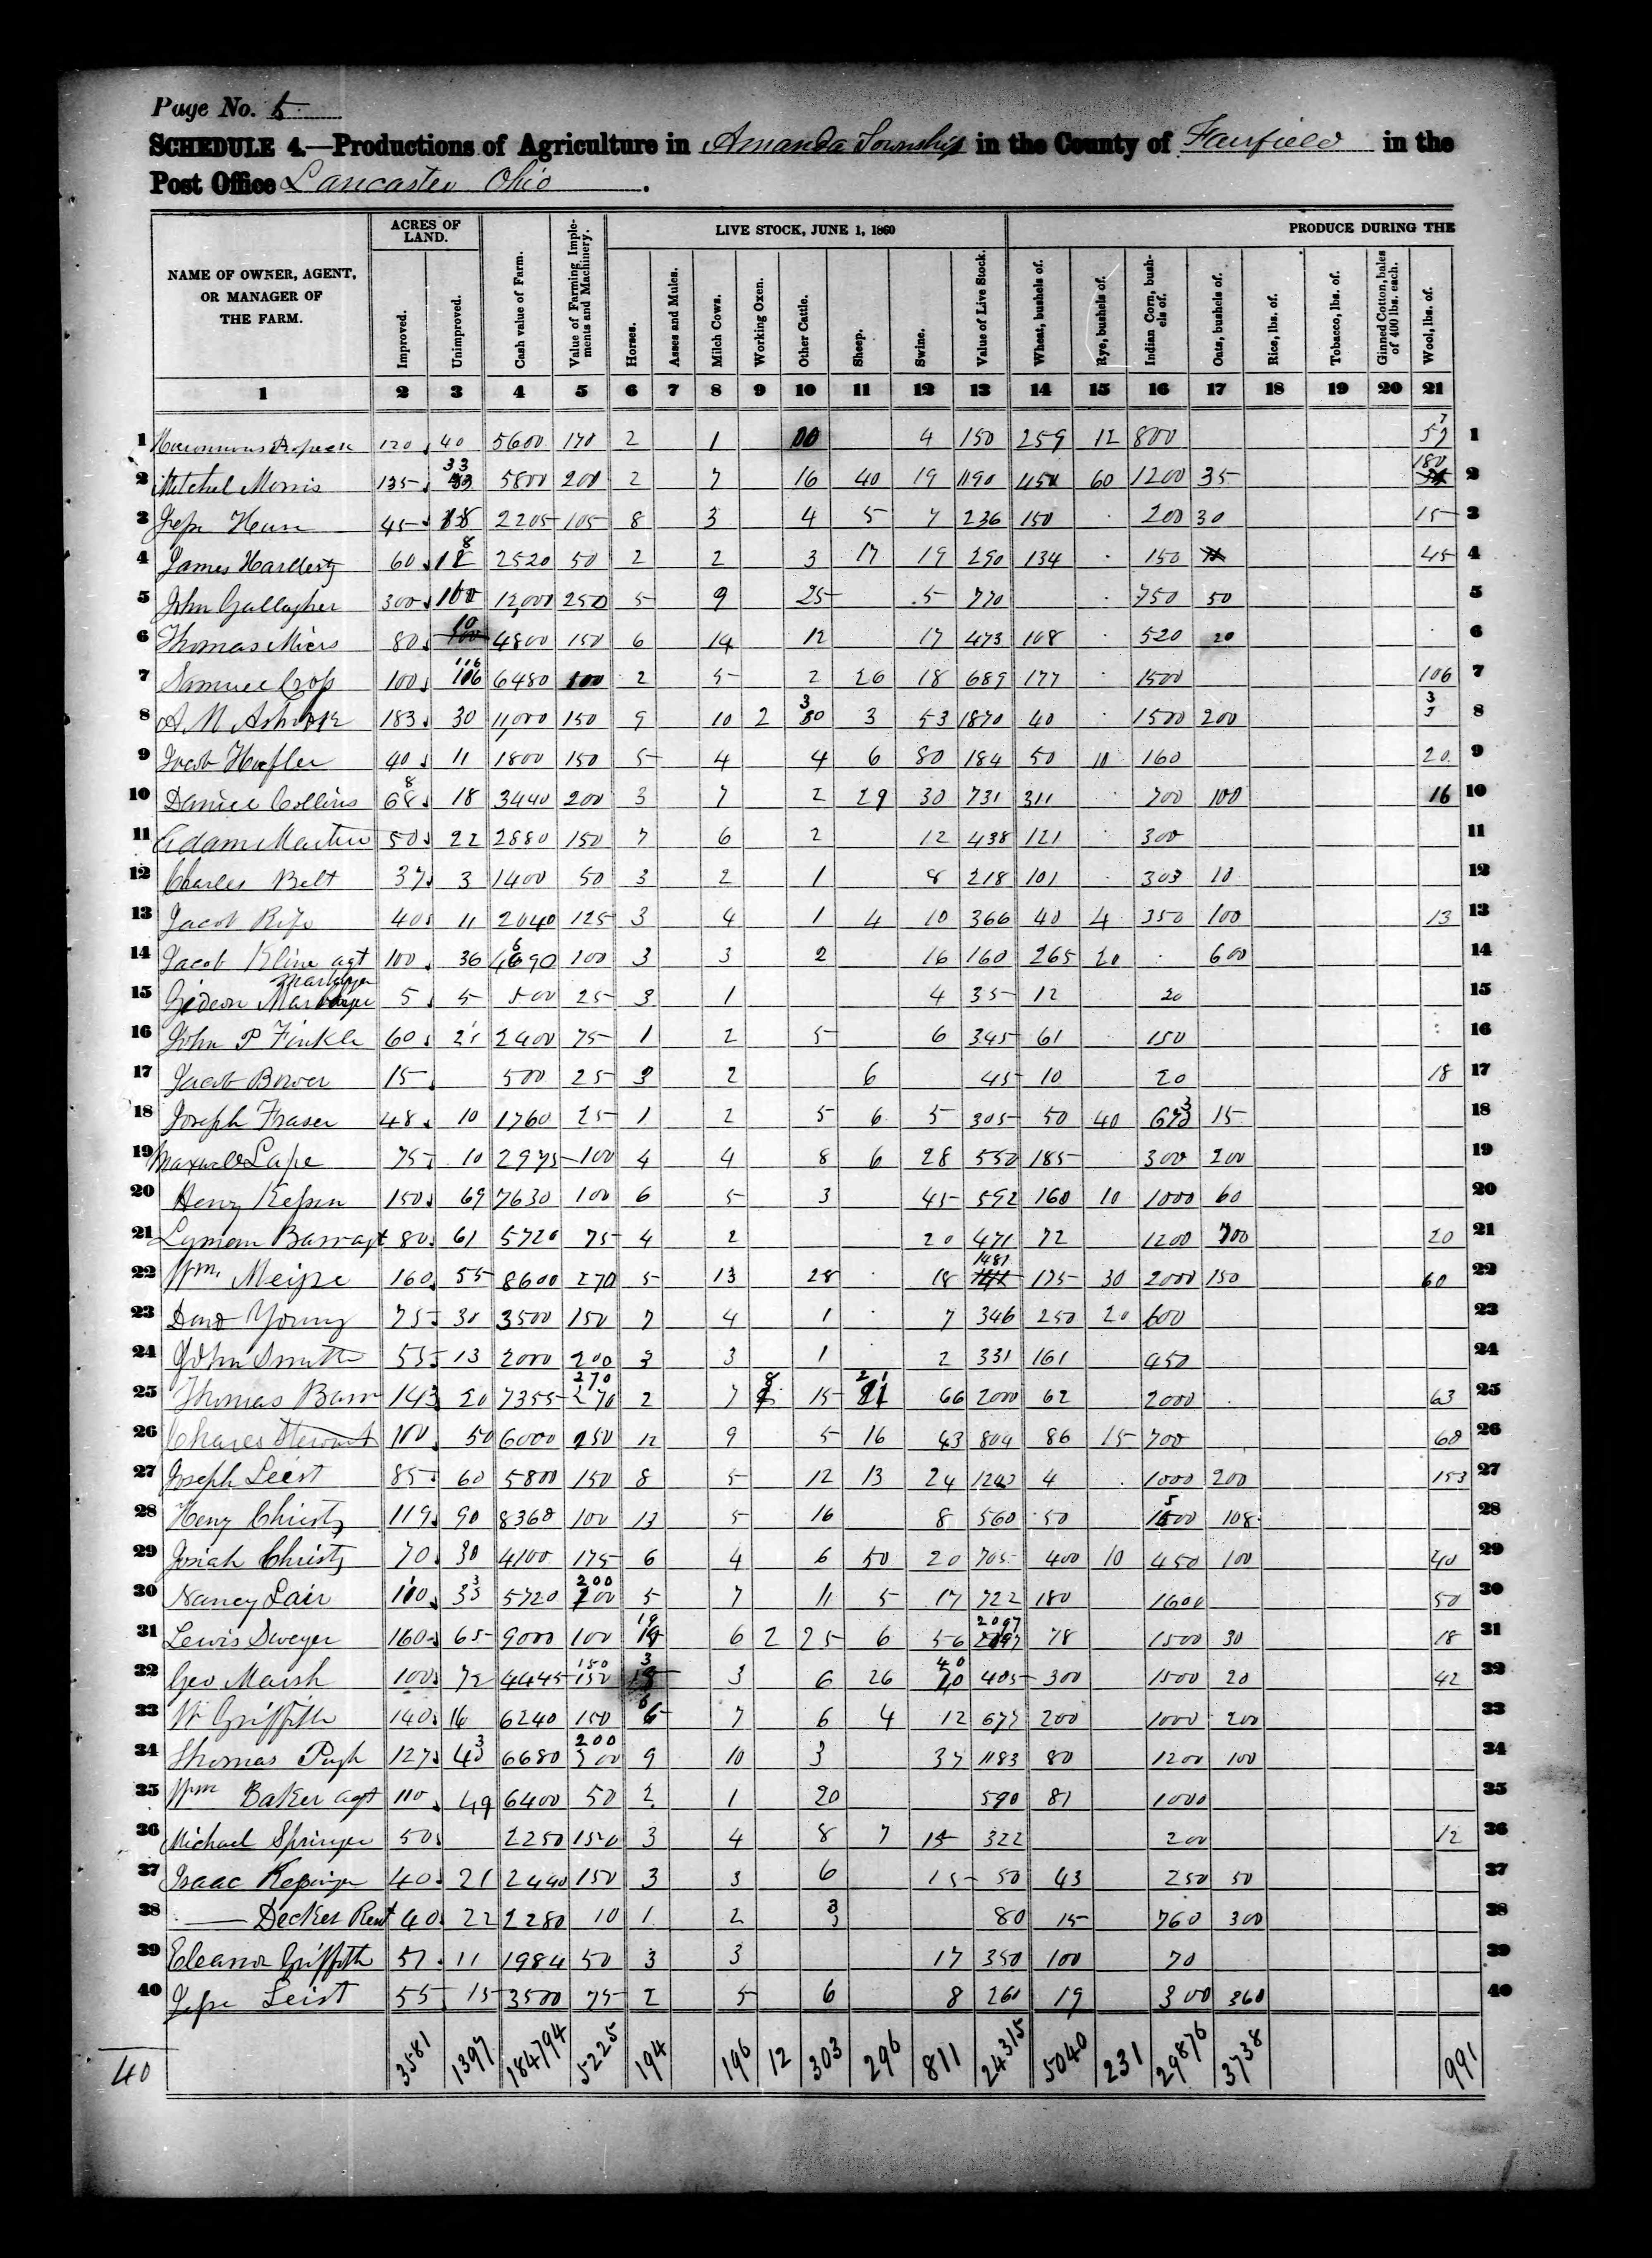 Page No. 5
SCHEDULE 4.—Productions of Agriculture in Amanda Township in the County of Fairfield in the
Post Office Lancaster Ohio.
NAME OF OWNER, AGENT, OR MANAGER OF THE FARM. ACRES OF LAND. Improved. Unimproved. Cash value of Farm. Value of Farming Implements and Machinery. LIVE STOCK, JUNE 1, 1860 Horses. Asses and Mules. Milch Cows. Working Oxen. Other Cattle. Sheep. Swine. Value of Live Stock. PRODUCE DURING THE Wheat, bushels of. Rye, bushels of. Indian Corn, bushels of. Oats, bushels of. Rice, lbs. of. Tobacco, lbs. of. Ginned Cotton, bales of 400 lbs. each. Wool, lbs. of.
1 2 3 4 5 6 7 8 9 10 11 12 13 14 15 16 17 18 19 20 21
1 120 40 5600 170 2 1 4 150 259 12 800 57 1
2 Mitchel Morris 135 33 5800 200 2 7 16 40 19 1190 450 60 1200 35 180 2
3 45 18 2205 105 8 3 4 5 7 236 150 200 30 15 3
4 James 60 18 2520 50 2 2 3 17 19 290 134 150 45 4
5 John Gallagher 300 100 12,000 250 5 9 25 5 770 750 50 5
6 Thomas Miers 80 10 4800 150 6 14 12 17 473 108 520 20 6
7 Samuel 100 116 6480 100 2 5 2 26 18 689 177 1500 106 7
8 A N 183 30 11,000 150 9 10 2 30 3 53 1870 40 1500 200 3 8
9 Jacob Hoefler 40 11 1800 150 5 4 4 6 80 184 50 10 160 20 9
10 Daniel Collins 68 18 3440 200 3 7 2 29 30 731 311 700 100 16 10
11 Adam Martin 50 22 2880 150 7 6 2 12 438 121 300 11
12 Charles Belt 37 3 1400 50 3 2 1 8 218 101 303 10 12
13 Jacob Rife 40 11 2040 125 3 4 1 4 10 366 40 4 350 100 13 13
14 Jacob Kline agt 100 36 4690 100 3 3 2 16 160 265 20 600 14
15 Gideon 5 5 500 25 3 1 4 35 12 20 15
16 John P Finkle 60 21 2400 75 1 2 5 6 345 61 150 16
17 Jacob Bower 15 500 25 3 2 6 45 10 20 18 17
18 Joseph Fraser 48 10 1760 25 1 2 5 6 5 305 50 40 673 15 18
19 Maxwell Lape 75 10 2975 100 4 4 8 6 28 550 185 300 200 19
20 Henry 150 69 7630 100 6 5 3 45 592 160 10 1000 60 20
21 Lyman Barr agt 80 61 5720 75 4 2 20 471 72 1200 700 20 21
22 Wm. Meise 160 55 8600 270 5 13 28 18 1481 175 30 2000 150 60 22
23 David Young 75 30 3500 150 7 4 1 7 346 250 20 600 23
24 John Smith 55 13 2000 200 3 3 1 2 331 161 450 24
25 Thomas Barr 143 20 7355 270 2 7 8 15 21 66 2000 62 2000 63 25
26 Charles Stewart 100 50 6000 250 12 9 5 16 43 804 86 15 700 60 26
27 Joseph Leist 85 60 5800 150 8 5 12 13 24 4 1000 200 153 27
28 Henry Christy 119 90 8360 100 13 5 16 8 560 50 1500 108 28
29 Josiah Christy 70 30 4100 175 6 4 6 50 20 705 400 10 450 100 40 29
30 Nancy Lair 110 33 5720 200 5 7 11 5 17 722 180 1600 50 30
31 Lewis Dweyer 160 65 9000 100 19 6 2 25 6 56 2097 78 1500 30 18 31
32 Geo Marsh 100 72 4445 150 3 3 6 26 40 405 300 1500 20 42 32
33 W Griffith 140 16 6240 150 6 7 6 4 12 677 200 1000 200 33
34 Thomas Pugh 127 43 6680 200 9 10 3 37 1183 80 1200 100 34
35 Wm Baker agt 110 49 6400 50 2 1 20 590 81 1000 35
36 Michael Springer 50 2250 150 3 4 8 7 15 322 200 12 36
37 Isaac 40 21 2440 150 3 3 6 15 50 43 250 50 37
38 — Decker Rent 40 22 2280 10 1 2 3 80 15 760 300 38
39 Eleanor Griffith 57 11 1984 50 3 3 17 350 100 70 39
40 Jesse Leist 55 15 3500 75 2 5 6 8 260 19 300 360 40
40 3581 1397 184794 5225 194 196 12 303 296 811 24315 5040 231 29876 3738 991